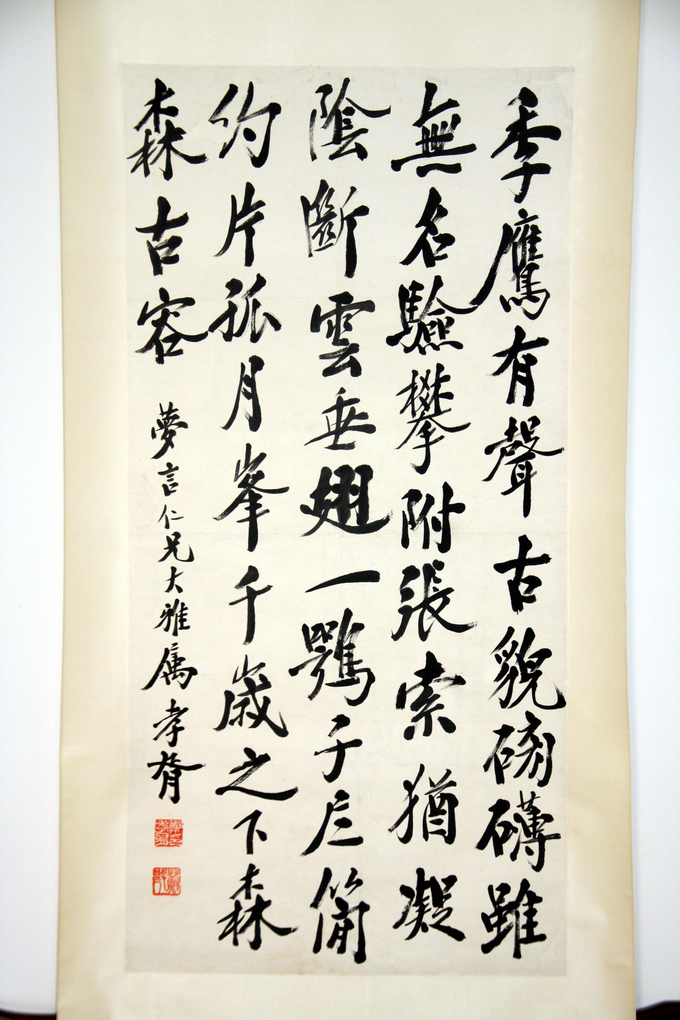 季鷹有聲古貌磅礴雖
無名驗攀附張索猶凝
陰斷雲垂翅一鶚于簡
約片孤月峯千歲之下森
森古容
夢言仁兄大雅屬 孝胥